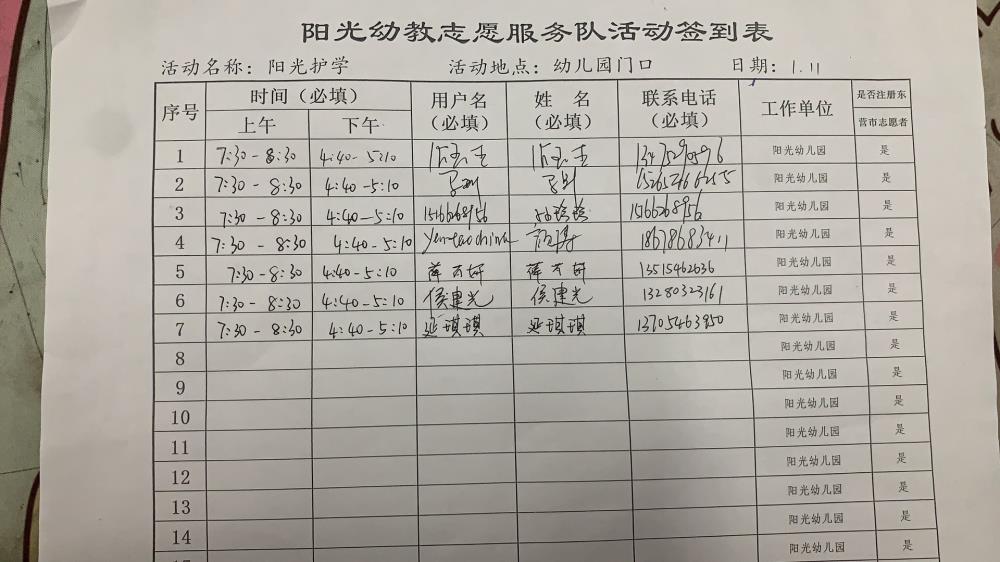 阳光幼教志愿服务队活动签到表
活动名称：阳光护学 活动地点：幼儿园门口 日期：1.11
序号 时间（必填） 用户名（必填） 姓 名（必填） 联系电话（必填） 工作单位 是否注册东营市志愿者
上午 下午
1 7:30-8:30 4:40-5:10 阳光幼儿园 是
2 7:30-8:30 4:40-5:10 阳光幼儿园 是
3 7:30-8:30 4:40-5:10 阳光幼儿园 是
4 7:30-8:30 4:40-5:10 阳光幼儿园 是
5 7:30-8:30 4:40-5:10 13515462636 阳光幼儿园 是
6 7:30-8:30 4:40-5:10 侯建光 侯建光 13280323161 阳光幼儿园 是
7 7:30-8:30 4:40-5:10 延琪琪 延琪琪 阳光幼儿园 是
8 阳光幼儿园 是
9 阳光幼儿园 是
10 阳光幼儿园 是
11 阳光幼儿园 是
12 阳光幼儿园 是
13 阳光幼儿园 是
14 阳光幼儿园 是
阳光幼儿园 是